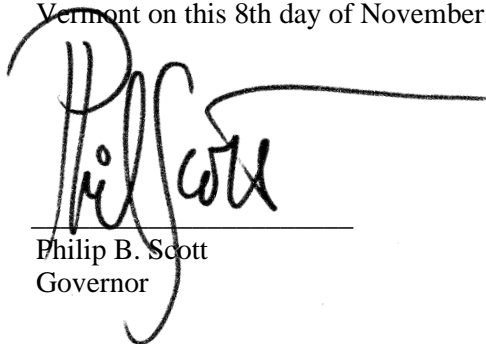 Vermont on this 8th day of November
Phil Scott
Philip B. Scott
Governor